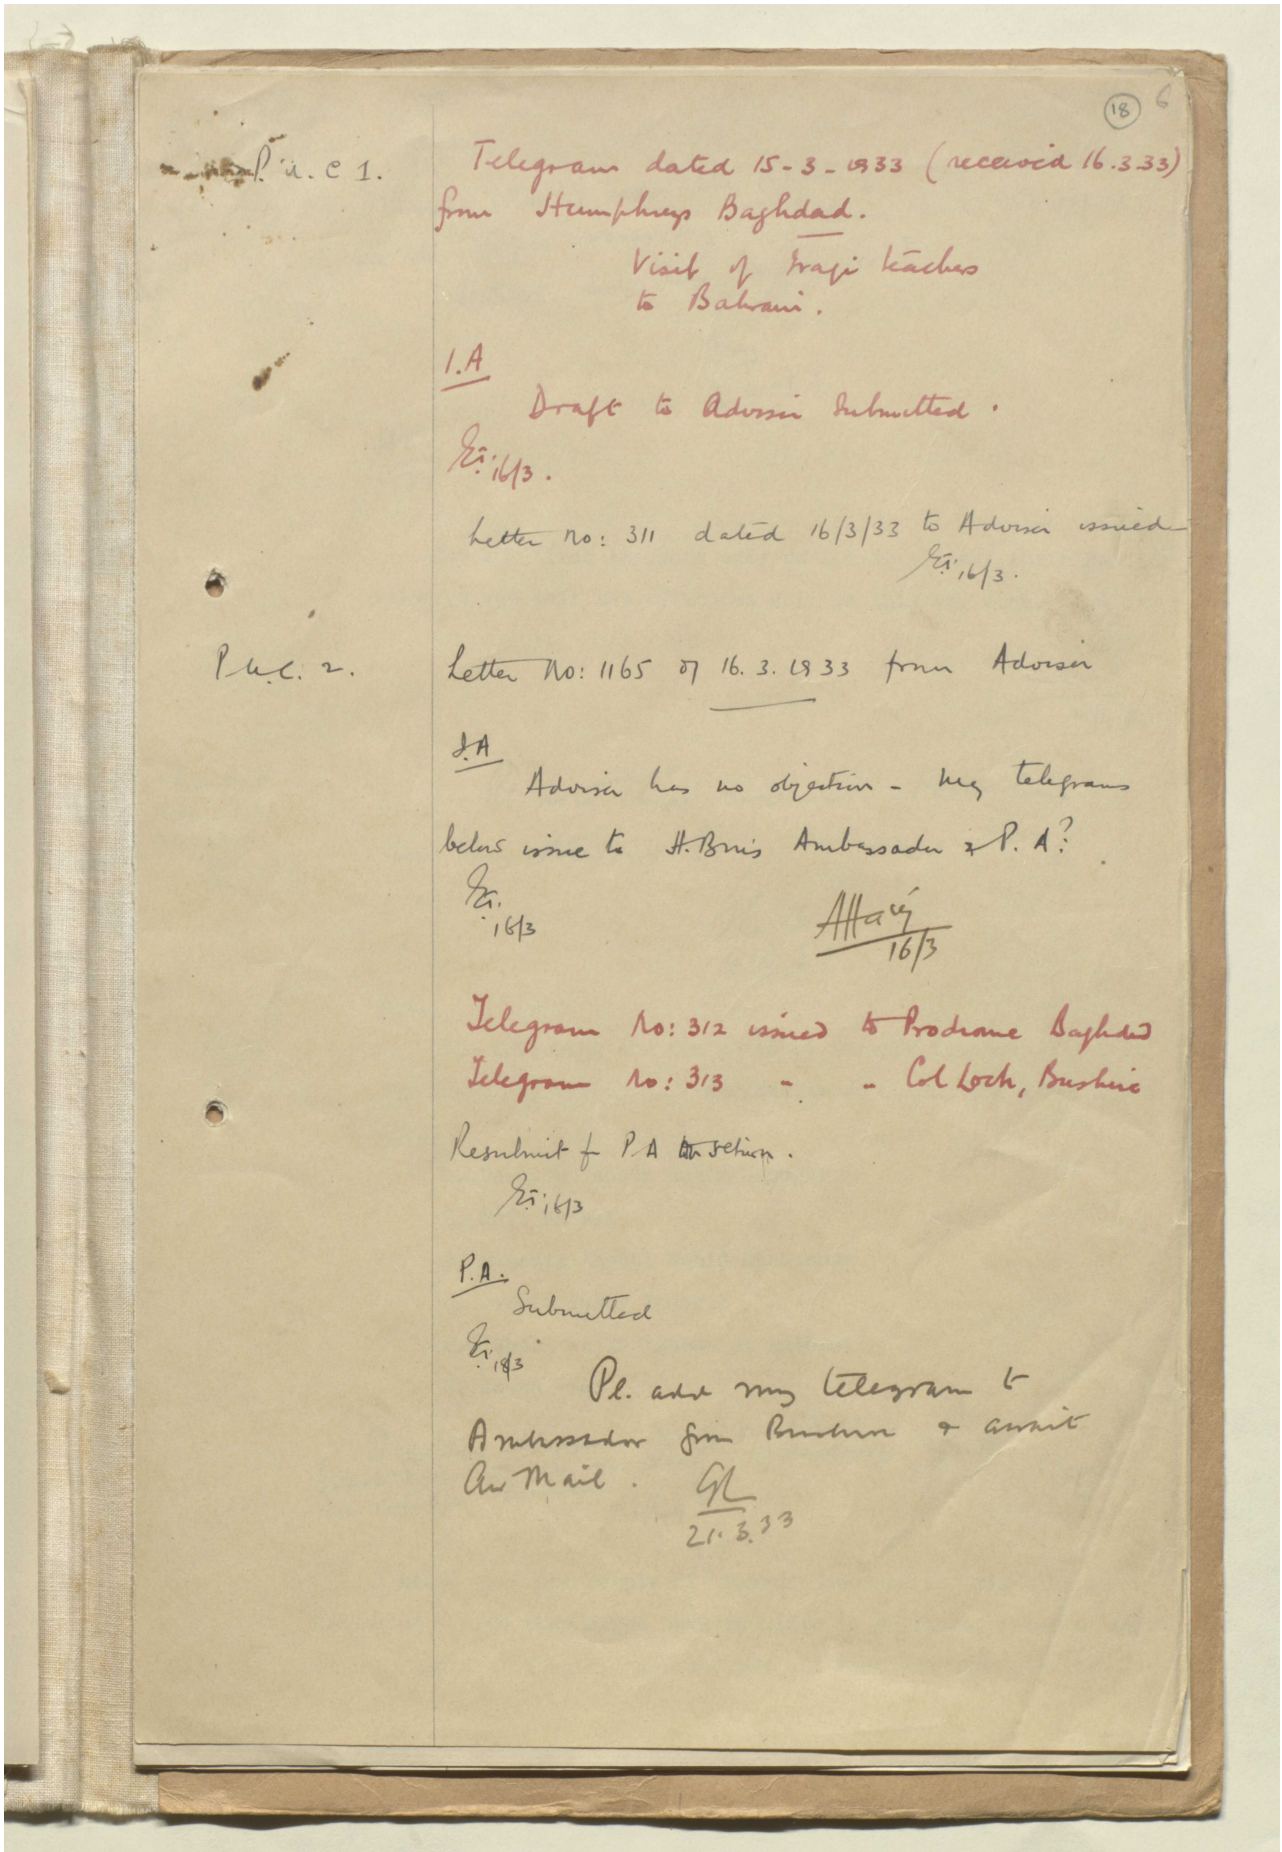 18 6
P.U.C 1.
Telegram dated 15-3-1933 (received 16.3.33)
from Humphrys Baghdad.
Visit of Iraqi teachers
to Bahrain.
I.A
Draft to Adviser submitted.
16/3.
Letter No: 311 dated 16/3/33 to Adviser issued
16/3.
P.U.C. 2.
Letter No: 1165 of 16.3.1933 from Adviser
I.A
Adviser has no objection - May telegrams
below issue to H.B.M's Ambassador & P.A?
16/3
16/3
Telegram No: 312 issued to Prodrome Baghdad
Telegram No: 313 " " Col Loch, Bushire
Resubmit for P A on return.
16/3
P.A.
Submitted
18/3
Pl. add my telegram to
Ambassador from Bushire & await
Air Mail. GL
21.3.33